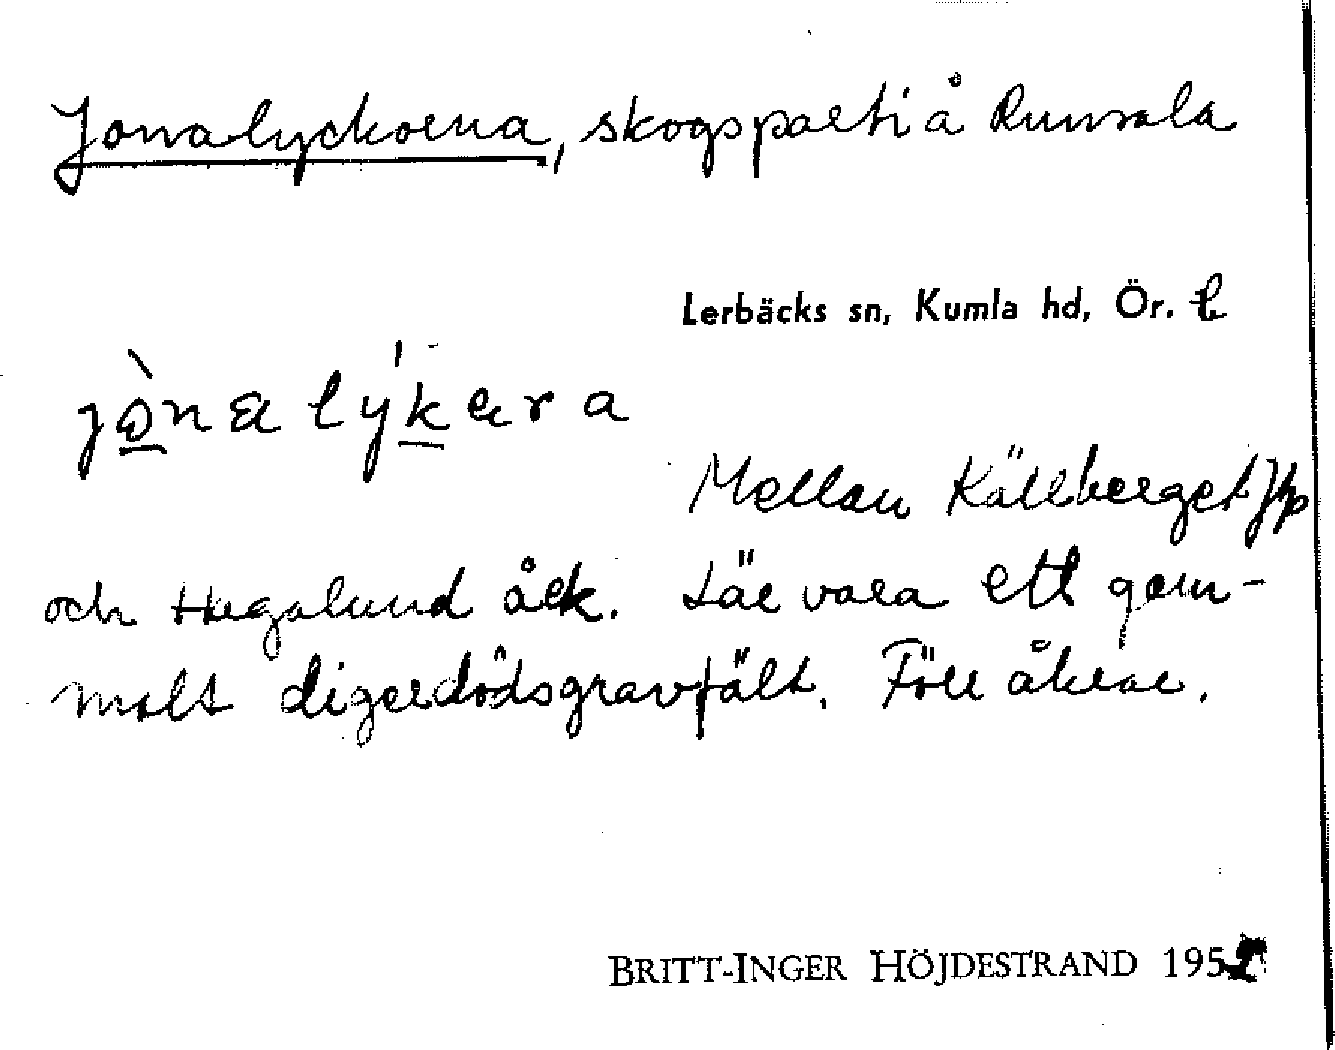 Jonalyckorna, skogsparti å Runsala
Lerbäcks sn, Kumla hd, Ör. l
jò̲na lýk̲ara
Mellan Källberget
och Hagalund åek. Lär vara ett gam-
malt digerdödsgravfält. Förr åkrar.
BRITT-INGER HÖJDESTRAND 195